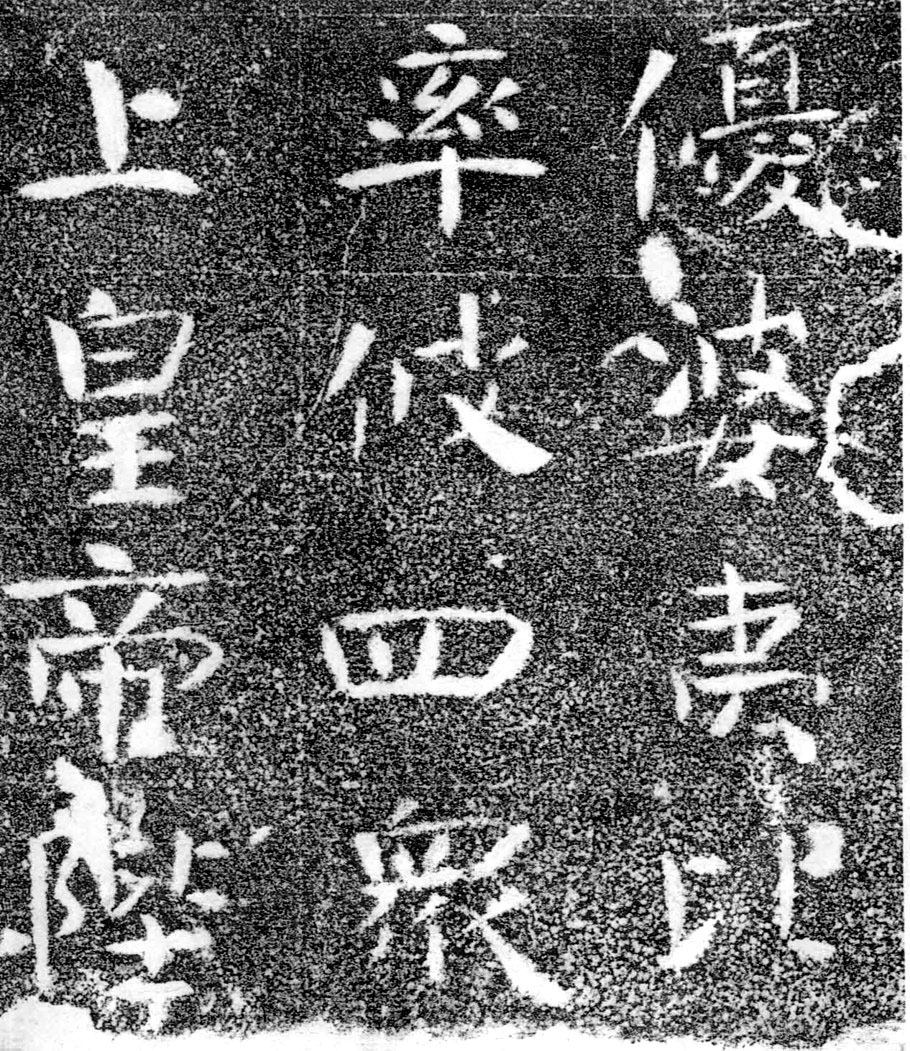 優婆夷比
率彼四眾
上皇帝陛